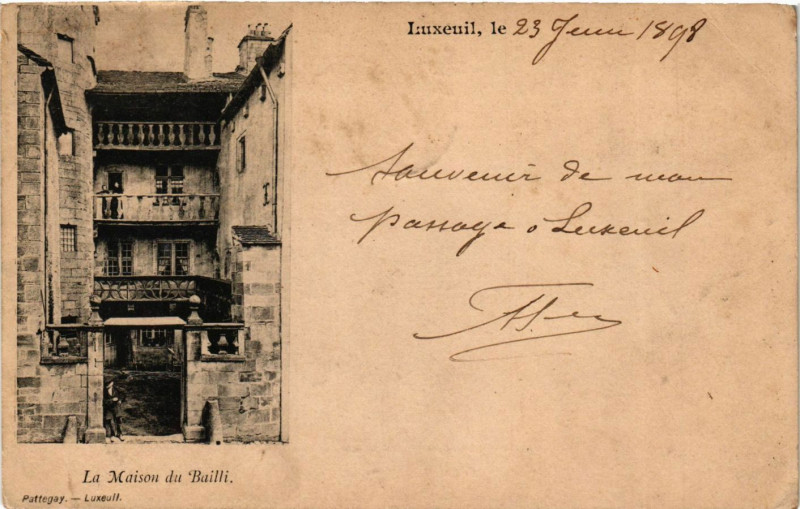 Luxeuil, le 23 Juin 1898
Souvenir de mon
passage à Luxeuil
La Maison du Bailli.
Pattegay. — Luxeuil.